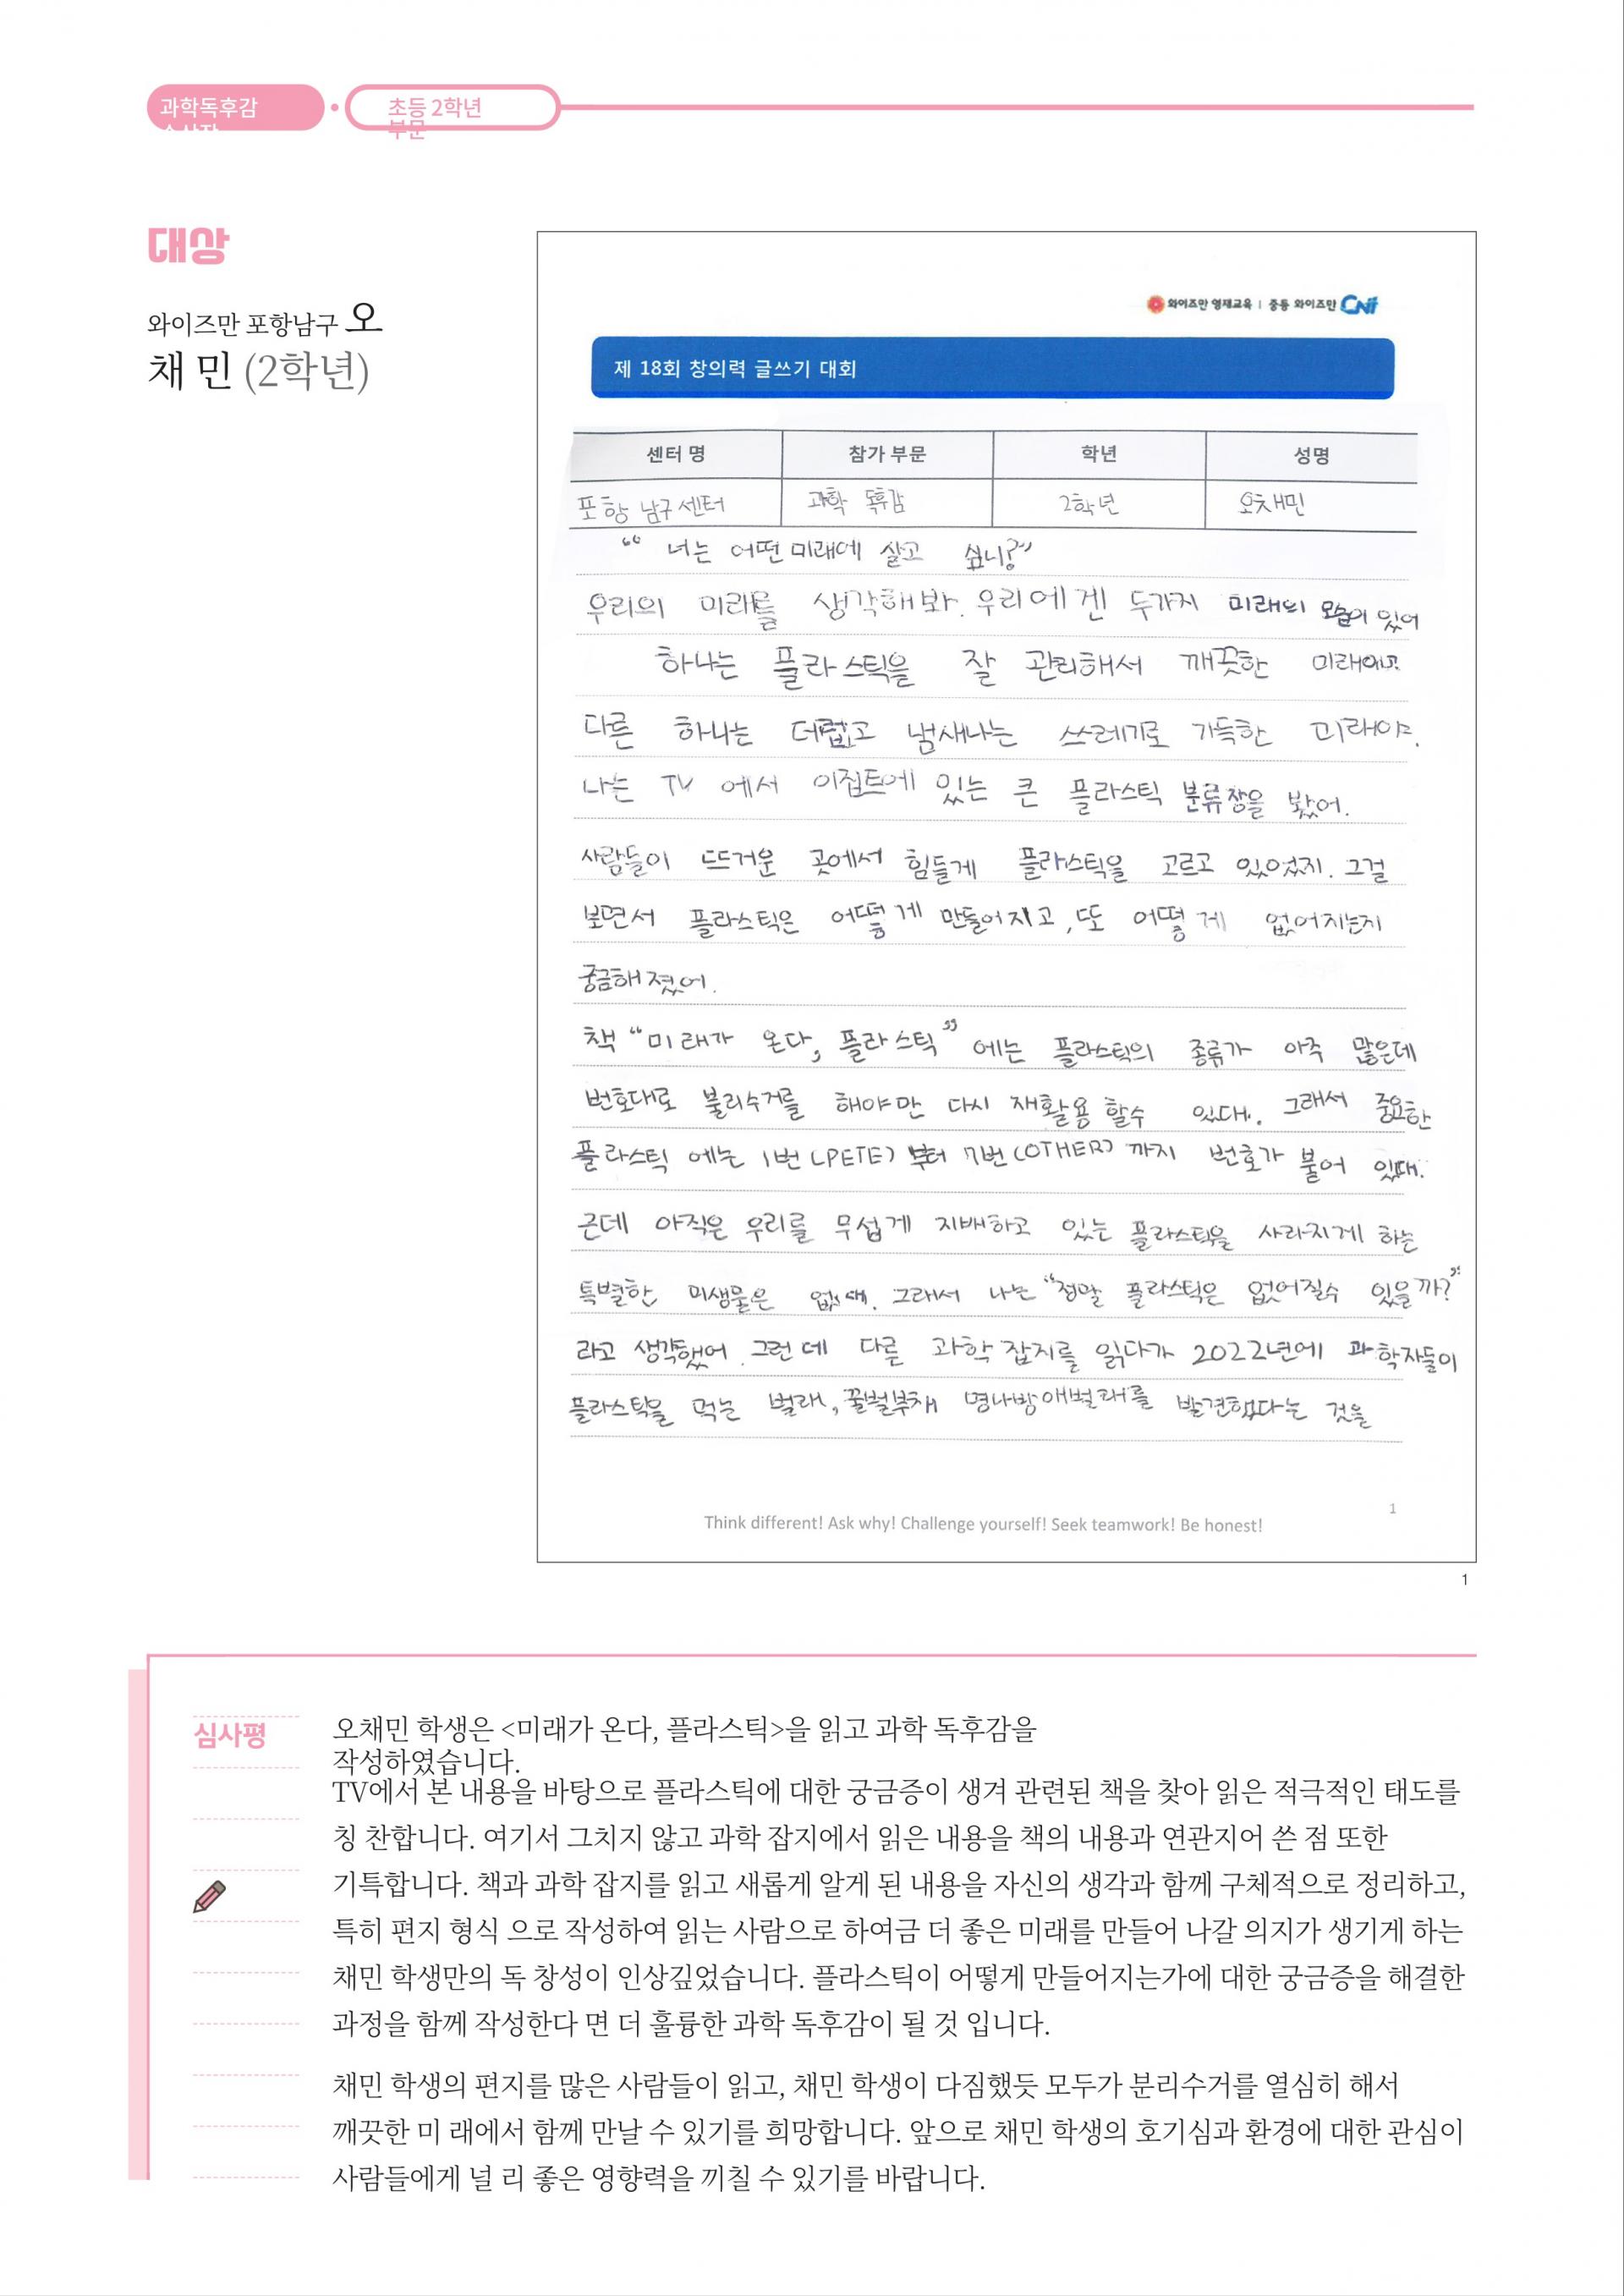 과학독후감
수상작
초등 2학년
부문
대상
와이즈만 포항남구 오
채 민 (2학년)
와이즈만 영재교육 | 중등 와이즈만 CNI
제 18회 창의력 글쓰기 대회
센터 명 참가 부문 학년 성명
포항 남구 센터 과학 독후감 2학년 오채민
“ 너는 어떤 미래에 살고 싶니?”
우리의 미래를 생각해봐. 우리에겐 두가지 미래의 모습이 있어
하나는 플라스틱을 잘 관리해서 깨끗한 미래이고
다른 하나는 더럽고 냄새나는 쓰레기로 가득한 미래야.
나는 TV 에서 이집트에 있는 큰 플라스틱 분류장을 봤어.
사람들이 뜨거운 곳에서 힘들게 플라스틱을 고르고 있었지. 그걸
보면서 플라스틱은 어떻게 만들어지고, 또 어떻게 없어지는지
궁금해졌어.
책 “미래가 온다, 플라스틱” 에는 플라스틱의 종류가 아주 많은데
번호대로 불리수거를 해야만 다시 재활용 할수 있대. 그래서 중요한
플라스틱 에는 1번 (PETE) 부터 7번 (OTHER) 까지 번호가 붙어 있대.
근데 아직은 우리를 무섭게 지배하고 있는 플라스틱을 사라지게 하는
특별한 미생물은 없대. 그래서 나는 “정말 플라스틱은 없어질수 있을까?”
라고 생각했어. 그런데 다른 과학 잡지를 읽다가 2022년에 과학자들이
플라스틱을 먹는 벌레, 꿀벌부채 명나방애벌레를 발견했다는 것을
Think different! Ask why! Challenge yourself! Seek teamwork! Be honest!
1
1
심사평
오채민 학생은 <미래가 온다, 플라스틱>을 읽고 과학 독후감을
작성하였습니다.
TV에서 본 내용을 바탕으로 플라스틱에 대한 궁금증이 생겨 관련된 책을 찾아 읽은 적극적인 태도를
칭 찬합니다. 여기서 그치지 않고 과학 잡지에서 읽은 내용을 책의 내용과 연관지어 쓴 점 또한
기특합니다. 책과 과학 잡지를 읽고 새롭게 알게 된 내용을 자신의 생각과 함께 구체적으로 정리하고,
특히 편지 형식 으로 작성하여 읽는 사람으로 하여금 더 좋은 미래를 만들어 나갈 의지가 생기게 하는
채민 학생만의 독 창성이 인상깊었습니다. 플라스틱이 어떻게 만들어지는가에 대한 궁금증을 해결한
과정을 함께 작성한다 면 더 훌륭한 과학 독후감이 될 것 입니다.
채민 학생의 편지를 많은 사람들이 읽고, 채민 학생이 다짐했듯 모두가 분리수거를 열심히 해서
깨끗한 미 래에서 함께 만날 수 있기를 희망합니다. 앞으로 채민 학생의 호기심과 환경에 대한 관심이
사람들에게 널 리 좋은 영향력을 끼칠 수 있기를 바랍니다.